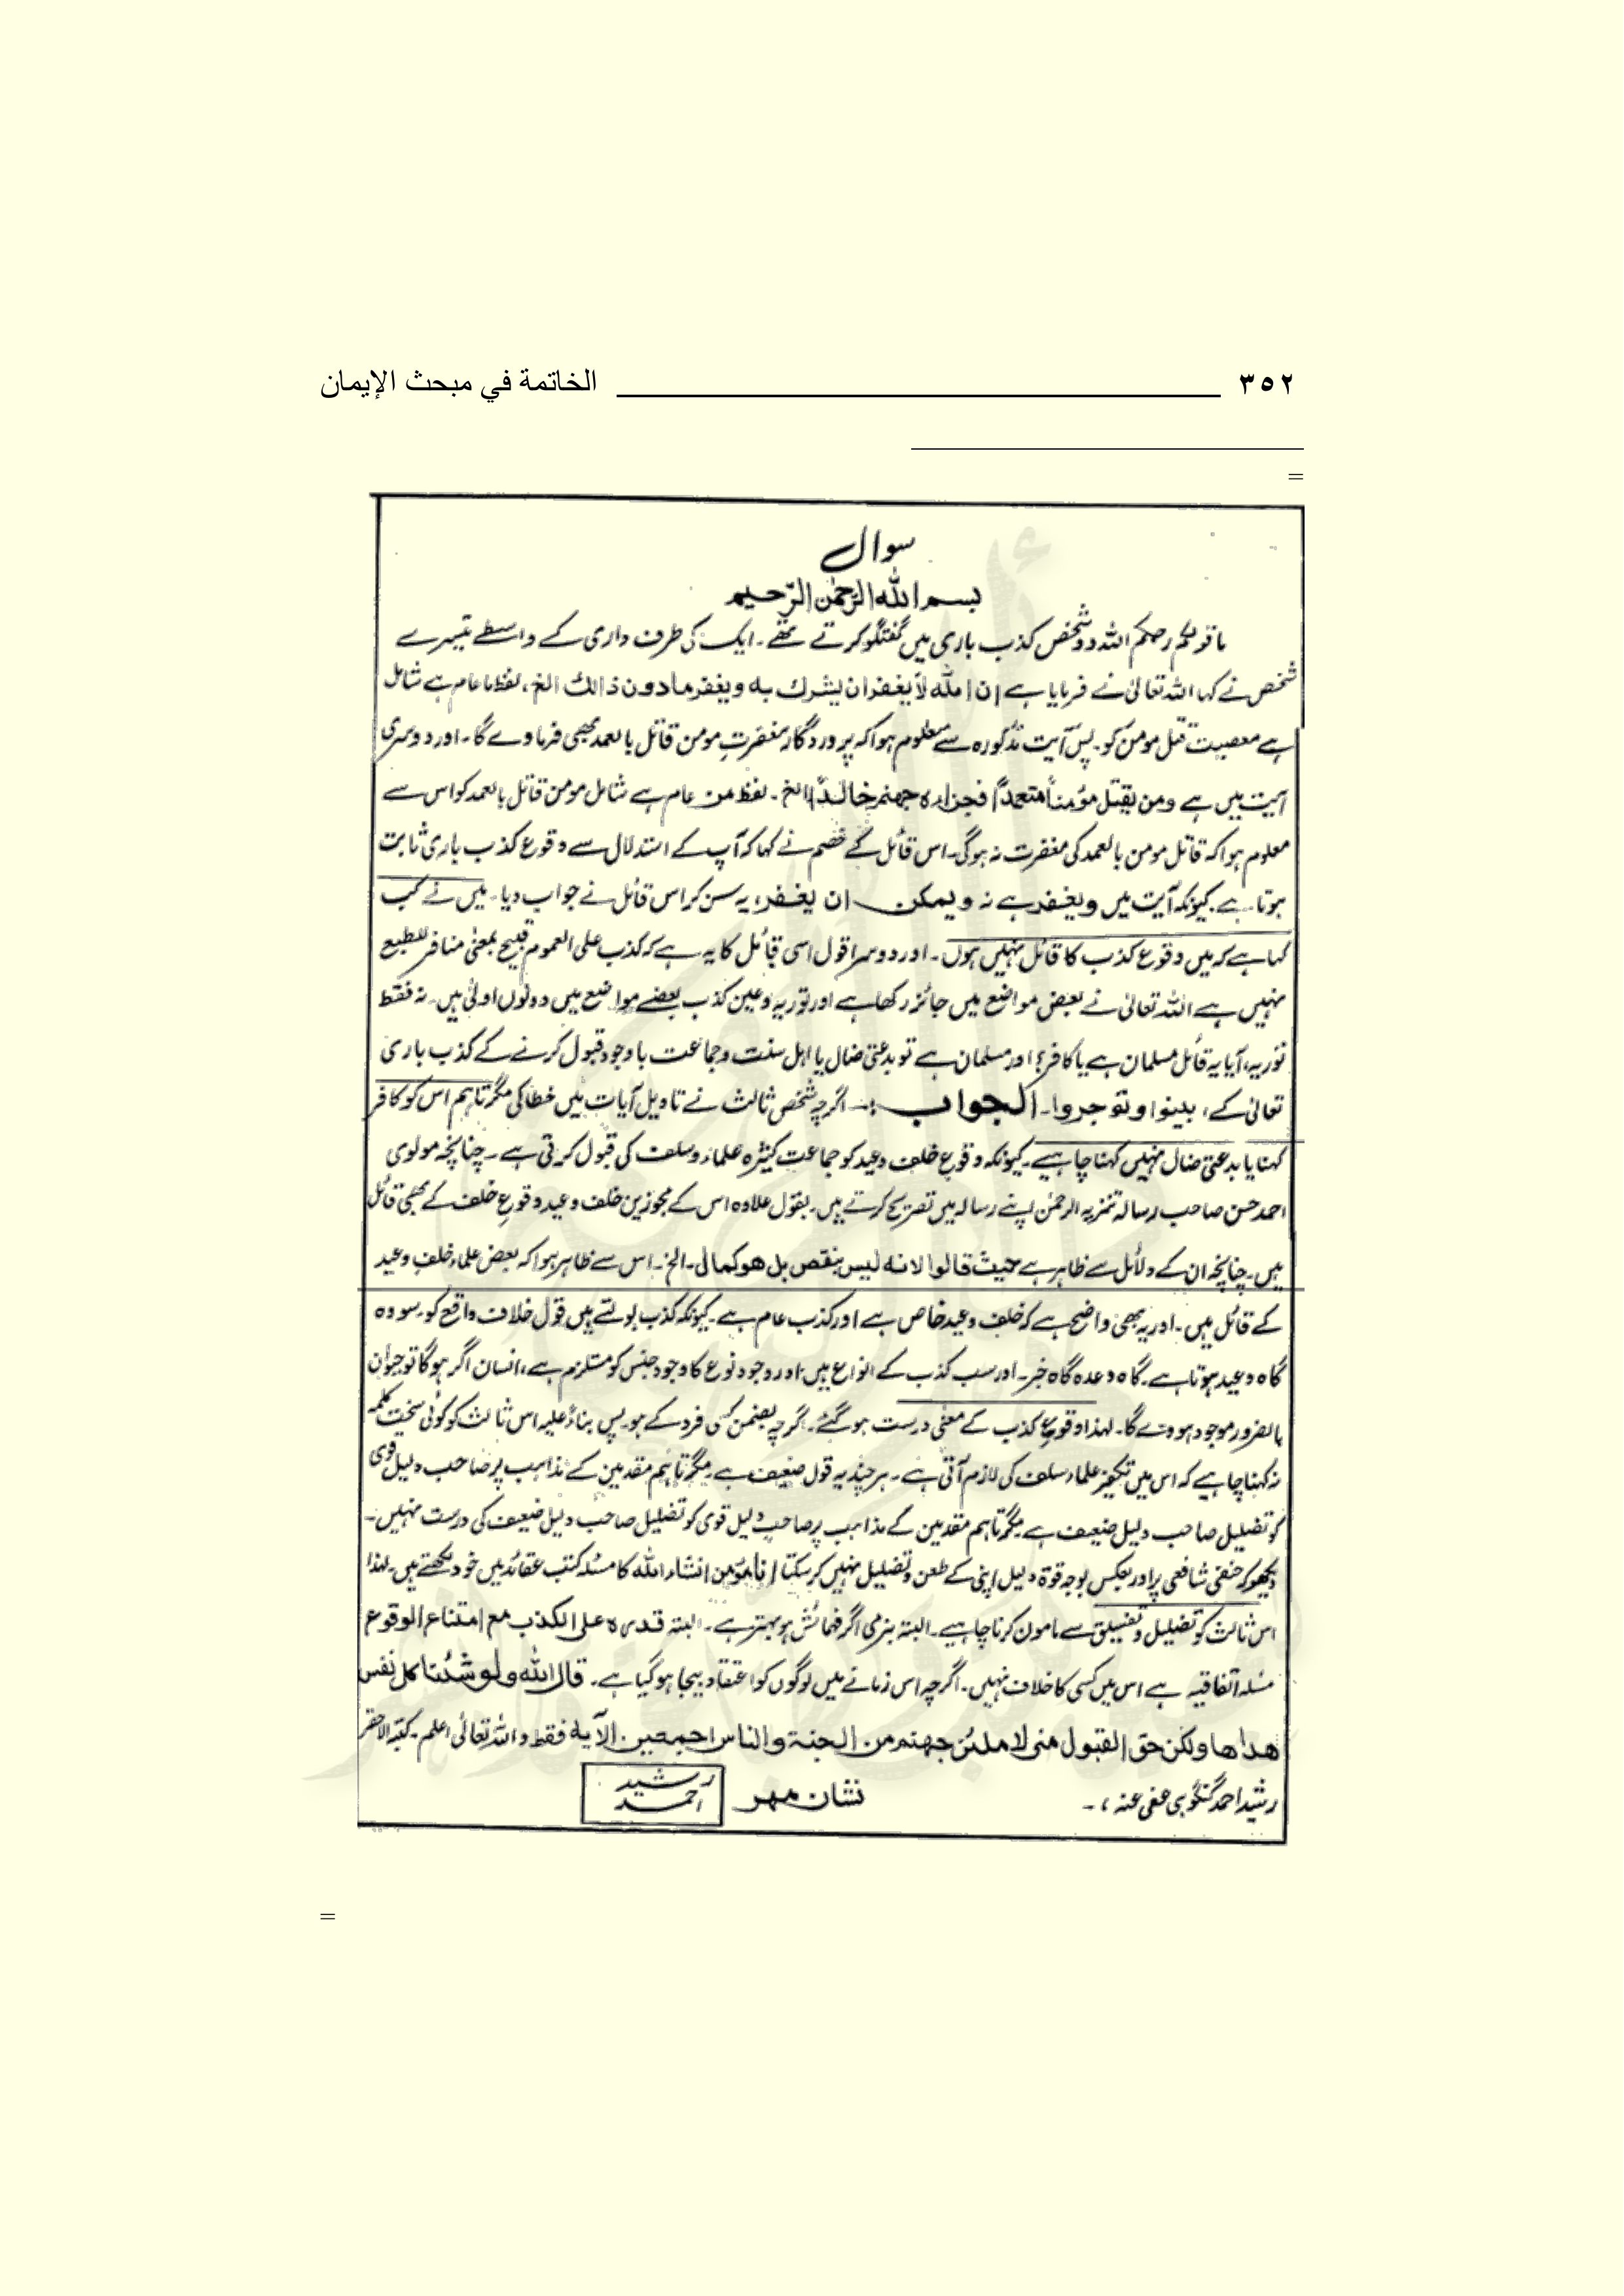 ٣٥٢ الخاتمة في مبحث الإيمان
=
سوال
بسم اللہ الرّحمٰن الرّحیم
ما قولکم رحمکم اللہ دو شخص کذب باری میں گفتگو کرتے تھے۔ ایک کی طرف داری کے واسطے تیسرے
شخص نے کہا اللہ تعالیٰ نے فرمایا ہے ان اللہ لا یغفر ان یشرك بہ و یغفر مادون ذالك الخ، لفظ ما عام ہے شامل
ہے معصیت قتل مومن کو۔ پس آیت مذکورہ سے معلوم ہوا کہ پروردگار مغفرتِ مومن قاتل بالعمد بھی فرماوے گا۔ اور دوسری
آیت میں ہے ومن یقتل مؤمناً متعمداً فجزاءہ جهنم خالداً الخ۔ لفظ من عام ہے شامل مومن قاتل بالعمد کو اس سے
معلوم ہوا کہ قاتل مومن بالعمد کی مغفرت نہ ہوگی۔ اس قائل کے خصم نے کہا کہ آپ کے استدلال سے وقوع کذب باری ثابت
ہوتا ہے۔ کیونکہ آیت میں ویغفر ہے نہ ویمکن ان یغفر؛ یہ سن کر اس قائل نے جواب دیا۔ میں نے کب
کہا ہے کہ میں وقوع کذب کا قائل نہیں ہوں۔ اور دوسرا قول اسی قائل کا یہ ہے کہ کذب علی العموم قبیح بمعنیٰ منافر للطبع
نہیں ہے اللہ تعالیٰ نے بعض مواضع میں جائز رکھا ہے اور توریہ و عین کذب بعضے مواضع میں دونوں اولیٰ ہیں۔ نہ فقط
توریہ، آیا یہ قائل مسلمان ہے یا کافر؟ اور مسلمان ہے تو بدعتی ضال یا اہل سنت وجماعت باوجود قبول کرنے کے کذب باری
تعالیٰ کے، بینوا وتوجروا۔ الجواب :۔ اگرچہ شخص ثالث نے تاویل آیات میں خطا کی مگر تاہم اس کو کافر
کہنا یا بدعتی ضال نہیں کہنا چاہیے۔ کیونکہ وقوعِ خلف وعید کو جماعت کثیرہ علماء و سلف کی قبول کرتی ہے۔ چنانچہ مولوی
احمد حسن صاحب رسالہ تنزیہ الرحمٰن اپنے رسالہ میں تصریح کرتے ہیں۔ بقول علاوہ اس کے مجوزین خلف وعید وقوع خلف کے بھی قائل
ہیں۔ چنانچہ ان کے دلائل سے ظاہر ہے حیث قالوا لانه لیس بنقص بل هو کمالی۔ الخ۔ اس سے ظاہر ہوا کہ بعض علماء خلفِ وعید
کے قائل ہیں۔ اور یہ بھی واضح ہے کہ خلف وعید خاص ہے اور کذب عام ہے۔ کیونکہ کذب بولتے ہیں قول خلاف واقع کو۔ سو وہ
گاہ وعید ہوتا ہے۔ گاہ وعدہ گاہ خبر۔ اور سب کذب کے انواع ہیں، اور وجود نوع کا وجود جنس کو مستلزم ہے، انسان اگر ہوگا تو حیوان
بالضرور موجود ہووے گا۔ لہذا وقوع کذب کے معنی درست ہو گئے۔ اگرچہ بضمن کسی فرد کے ہو۔ پس بناءً علیہ اس ثالث کو کوئی سخت کلمہ
نہ کہنا چاہیے کہ اس میں تکفیر علماء سلف کی لازم آتی ہے۔ ہر چند یہ قول ضعیف ہے۔ مگر تاہم متقدمین کے مذاہب پر صاحب دلیل قوی
کو تضلیل صاحب دلیل ضعیف ہے۔ مگر تاہم متقدمین کے مذاہب پر صاحب دلیل قوی کو تضلیل صاحب دلیل ضعیف کی درست نہیں۔
دیکھو کہ حنفی شافعی پر اور بعکس بوجہ قوۃ دلیل اپنی کے طعن و تضلیل نہیں کر سکتا انا مؤمن انشاء اللہ کا مسئلہ کتب عقائد میں خود لکھتے ہیں۔ لہذا
اس ثالث کو تضلیل و تفسیق سے مامون کرنا چاہیے۔ البتہ بنرمی اگر فہمائش ہو بہتر ہے۔ البتہ قدرہ علی الکذب مع امتناع الوقوع
مسئلہ اتفاقیہ ہے اس میں کسی کا خلاف نہیں۔ اگرچہ اس زمانے میں لوگوں کو اعتقاد بیجا ہو گیا ہے۔ قال اللہ ولو شئنا کل نفس
هداها ولکن حق القبول منی لاملئن جهنم من الجنة والناس اجمعین۔ الآیہ فقط واللہ تعالٰی اعلم۔ کتبہ الاحقر
رشید احمد گنگوہی عفی عنہ، ۔ نشان مهر رشید احمد
=